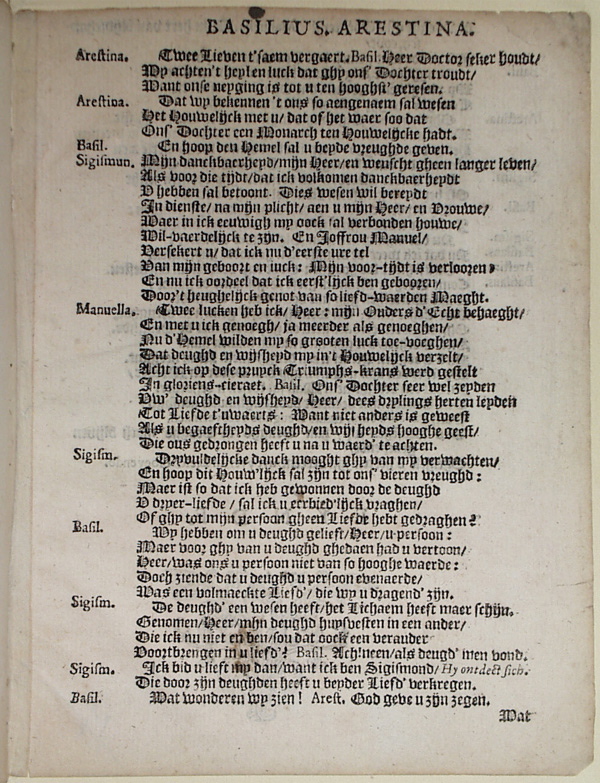 BASILIUS. ARESTINA.
Arestina. Twee Lieven t'saem vergaert. Basil. Heer Doctor seker houdt/
Wy achten't heyl en luck dat ghy ons' Dochter troudt/
Want onse neyging is tot u ten hooghst' geresen.
Arestina. Dat wy bekennen 't ons so aengenaem sal wesen
Het Houwelijck met u/ dat of het waer soo dat
Ons' Dochter een Monarch ten Houwelijcke hadt.
Basil. En hoop den Hemel sal u beyde vreughde geven.
Sigismun. Mijn danckbaerheyd/mijn Heer/en weuscht gheen langer leven/
Als voor die tijdt/dat ick volkomen danckbaerheydt
U hebben sal betoont. Dies wesen wil bereydt
In dienste/ na mijn plicht/ aen u mijn Heer/ en Vrouwe/
Waer in ick eeuwigh my oock sal verbonden houwe/
Wil-vaerdelijck te zijn. En Joffrou Manuel/
Versekert u/ dat ick nu d'eerste ure tel
Van mijn geboort en luck: Mijn voor-tijdt is verlooren/
En nu ick oordeel dat ick eerst'lijck ben gebooren/
Door't heughelijck genot van so lief d-waerden Maeght.
Manuella. Twee lucken heb ick/ Heer: mijn Ouders d'Echt behaeght/
En met u ick genoegh/ ja meerder als genoeghen/
Nu d'Hemel wilden my so grooten luck toe-voeghen/
Dat deughd en wijsheyd my in't Houwelijck verzelt/
Acht ick op dese pruyck Triumphs-krans werd gestelt
In gloriens-cieraet. Basil. Ons' Dochter seer wel zeyden
Uw' deughd en wijsheyd/ Heer/ dees drylings herten leyden
Tot Liefde t'uwaerts: Want niet anders is geweest
Als u begaeftheyds deughd/en wijsheyds hooghe geest/
Die ons gedrongen heeft u na u waerd' te achten.
Sigism. Dryvuldelijcke danck mooght ghy van my verwachten/
En hoop dit Houw'lijck sal zijn tot ons' vieren vreughd:
Maer ist so dat ick heb gewonnen door de deughd
U dryer-liefde / sal ick u eerbied'lijck vraghen/
Of ghy tot mijn persoon gheen Liefde hebt gedraghen?
Basil. Wy hebben om u deughd gelieft/Heer/u persoon:
Maer voor ghy van u deughd ghedaen had u vertoon/
Heer/was ons u persoon niet van so hooghe waerde:
Doch ziende dat u deughd u persoon evenaerde/
Was een volmaeckte Liefd'/ die wy u dragend' zijn.
Sigism. De deughd' een wesen heeft/het Lichaem heeft maer schijn.
Genomen/Heer/mijn deughd huysvesten in een ander/
Die ick nu niet en ben/sou dat oock een verander
Voortbrengen in u liefd'? Basil. Ach!neen/als deugd' men vond.
Sigism. Ick bid u lieft my dan/want ick ben Sigismond/ Hy ontdeckt sich.
Die door zijn deughden heeft u beyder Liefd' verkregen.
Basil. Wat wonderen wy zien! Arest. God geve u zijn zegen.
Wat